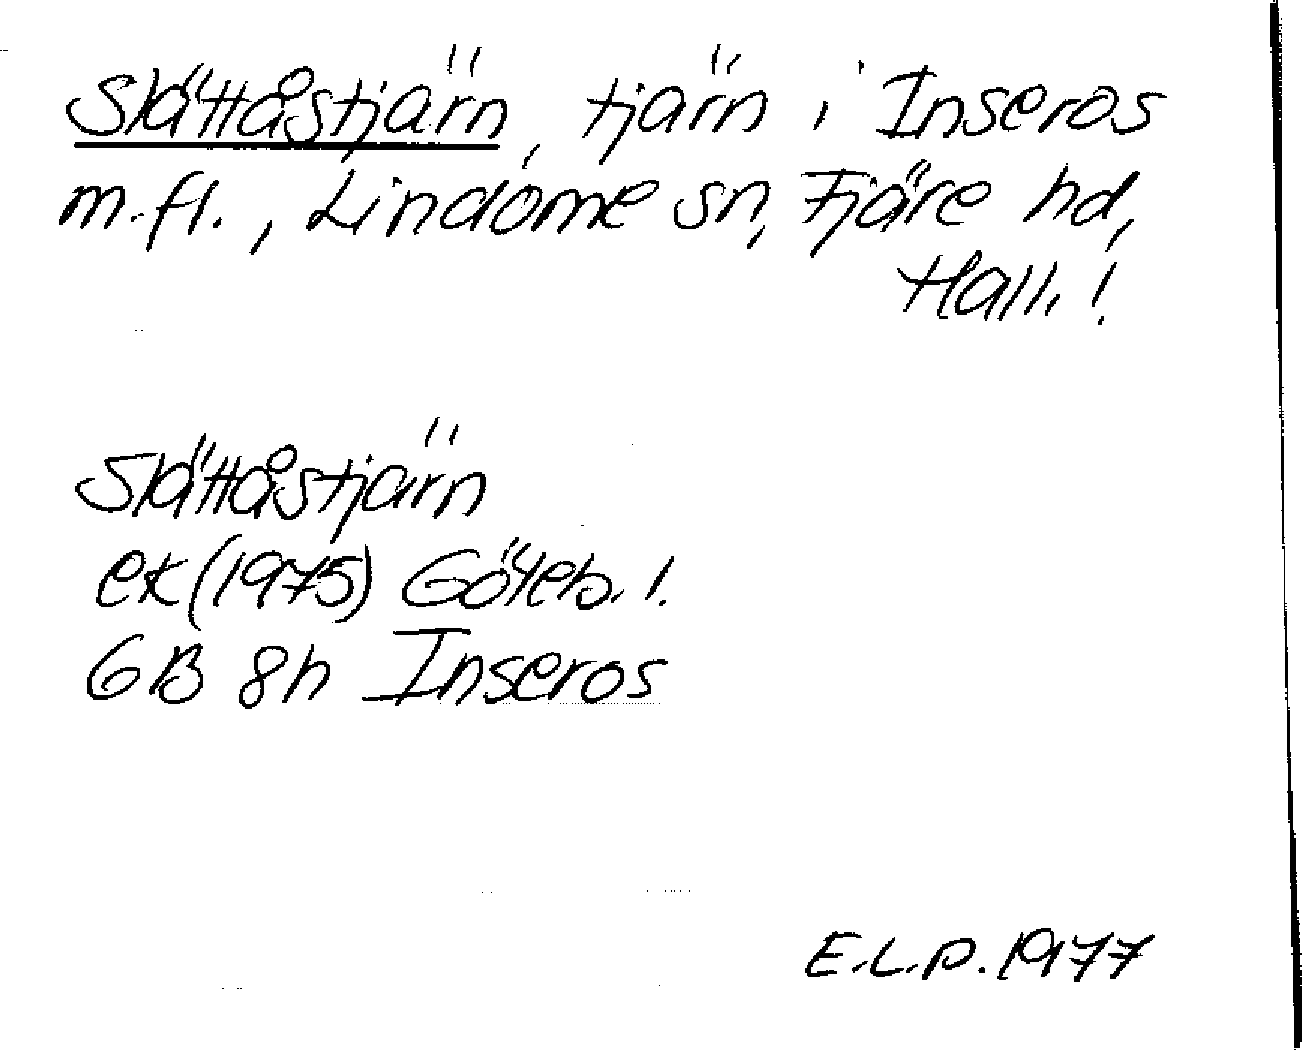 Slättåstjärn, tjärn i Inseros
m.fl., Lindome sn, Fjäre hd,
Hall. !
Slättåstjärn
ek (1975) Göteb. l.
6B 8h Inseros
E.L.P. 1977